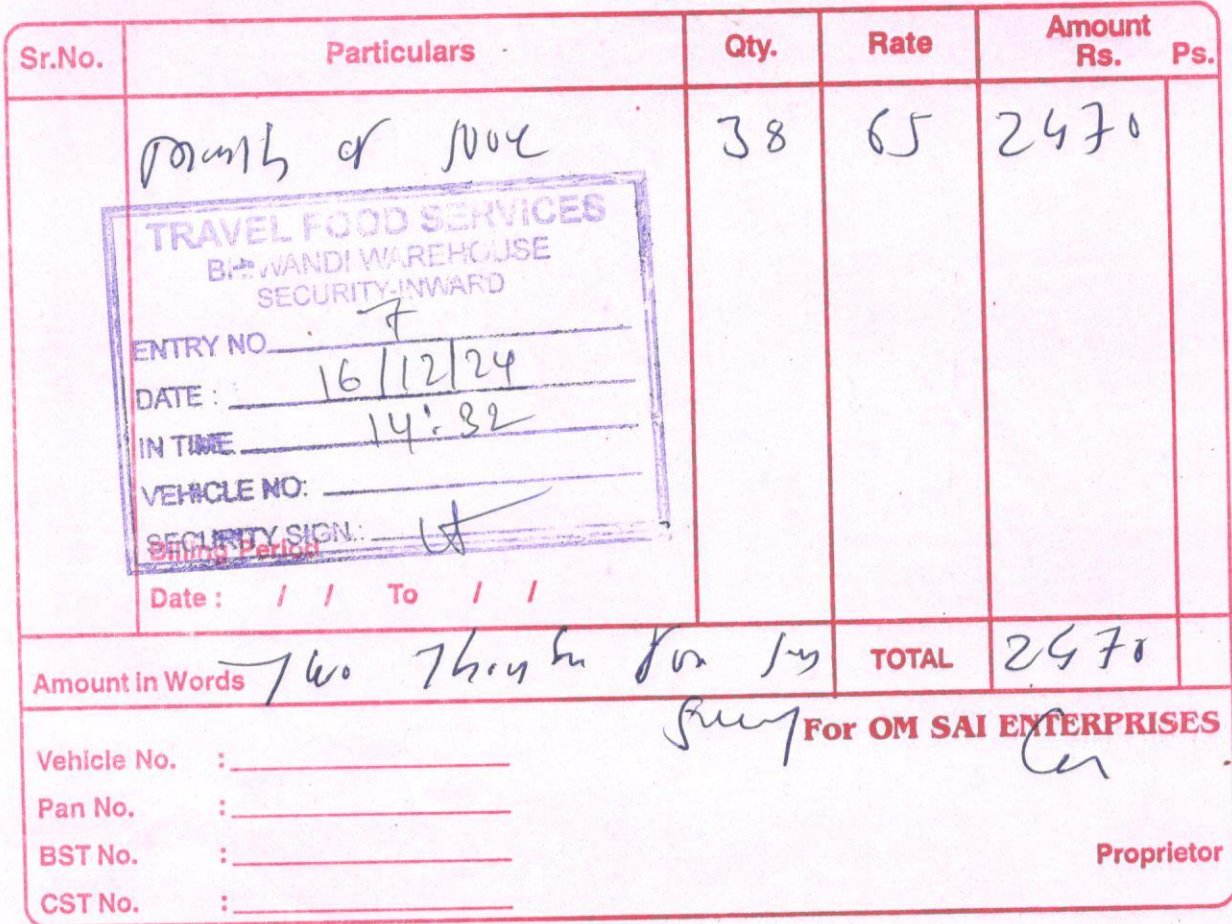 Sr.No. Particulars Qty. Rate Amount Rs. Ps.
of 38 65 2470
TRAVEL FOOD SERVICES
BHIWANDI WAREHOUSE
SECURITY-INWARD
ENTRY NO. 7
DATE : 16/12/24
IN TIME 14:32
VEHICLE NO:
SECURITY SIGN.:
Billing Period
Date : / / To / /
Amount in Words Two TOTAL 2470
For OM SAI ENTERPRISES
Vehicle No. :
Pan No. :
BST No. :
CST No. :
Proprietor